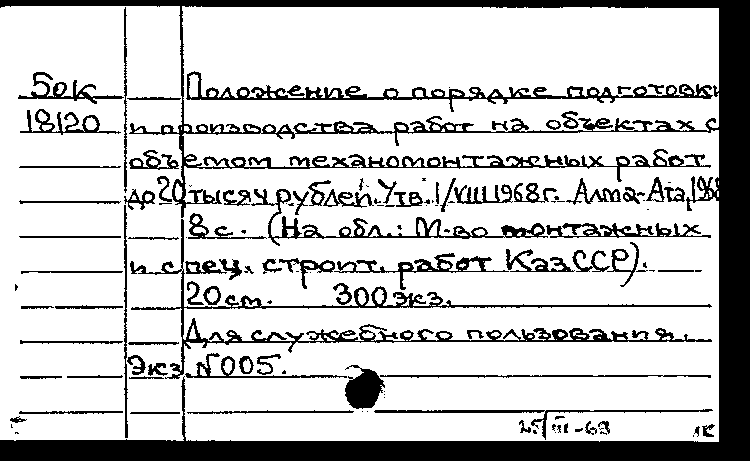 50к Положение о порядке подготовки
18120 и производства работ на объектах с
объемом механомонтажных работ
до 20 тысяч рублей. Утв. 1/VIII 1968г. Алма-Ата, 1968
8с. (На обл.: М-во монтажных
и спец. строит. работ КазССР).
20см. 300экз.
Для служебного пользования.
Экз. N005.
25/III-69 1К